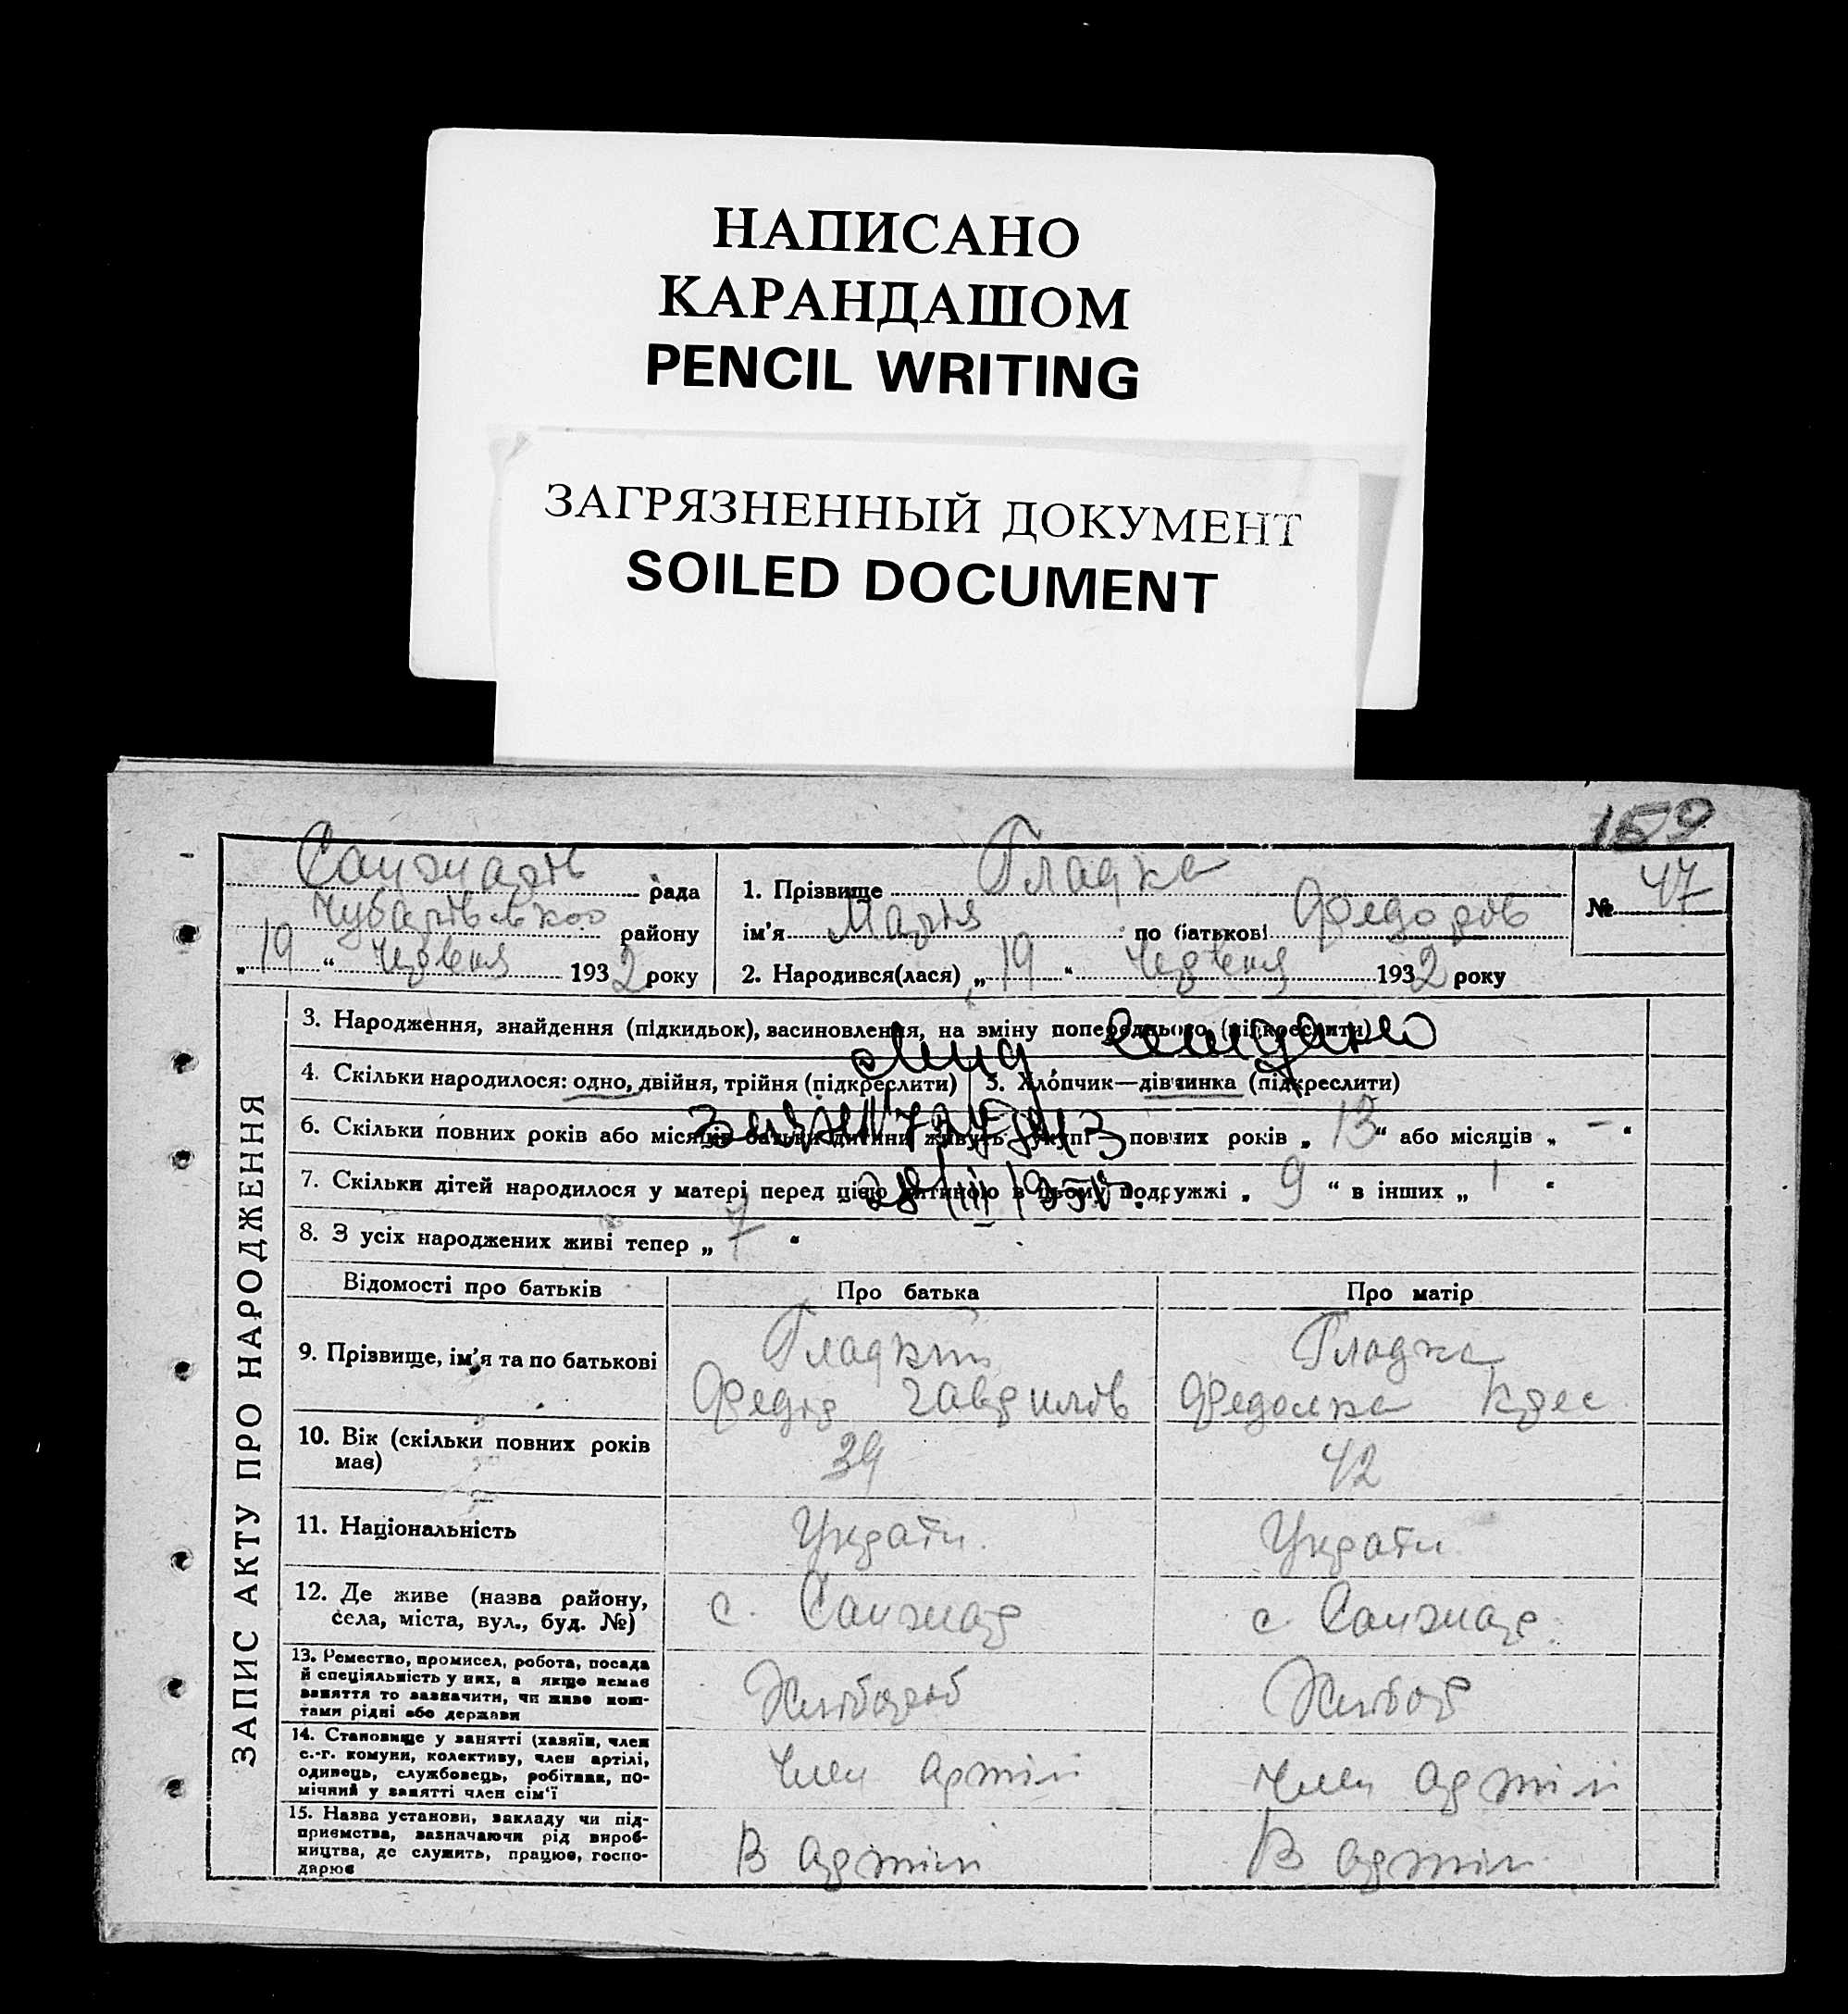 НАПИСАНО
КАРАНДАШОМ
PENCIL WRITING
ЗАГРЯЗНЕННЫЙ ДОКУМЕНТ
SOILED DOCUMENT
159
рада
району
„ 19 “ Червня 1932 року
1. Прізвище Гладка
ім'я Марія по батькові Федорів
2. Народився(лася) „ 19 “ Червня 1932 року
№ 47
ЗАПИС АКТУ ПРО НАРОДЖЕННЯ
3. Народження, знайдення (підкидьок), засиновлення, на зміну попереднього (підкреслити)
4. Скільки народилося: одно, двійня, трійня (підкреслити) 5. Хлопчик—дівчинка (підкреслити)
6. Скільки повних років або місяців батьки дитини живуть укупі— повних років „ 13 “ або місяців „ – “
7. Скільки дітей народилося у матері перед цією дитиною в цьому подружжі „ 9 “ в інших „ 1 “
8. З усіх народжених живі тепер „ 7 “
Відомості про батьків Про батька Про матір
9. Прізвище, ім'я та по батькові
Гладкий
Федір Гаврилів
Гладка
Федоська
10. Вік (скільки повних років має) 39 42
11. Національність Україн. Україн.
12. Де живе (назва району,
села, міста, вул., буд. №)
с. Санжар с. Санжар.
13. Ремество, промисел, робота, посада
й спеціяльність у них, а якщо немає
заняття то зазначити, чи живе кош-
тами рідні або держави
Хлібороб Хлібор
14. Становище у занятті (хазяїн, член
с.-г. комуни, колективу, член артілі,
одинець, службовець, робітник, по-
мічний у занятті член сім'ї
Член артілі Член артілі
15. Назва установи, закладу чи під-
приємства, зазначаючи рід вироб-
ництва, де служить, працює, госпо-
дарює
В артілі В артілі